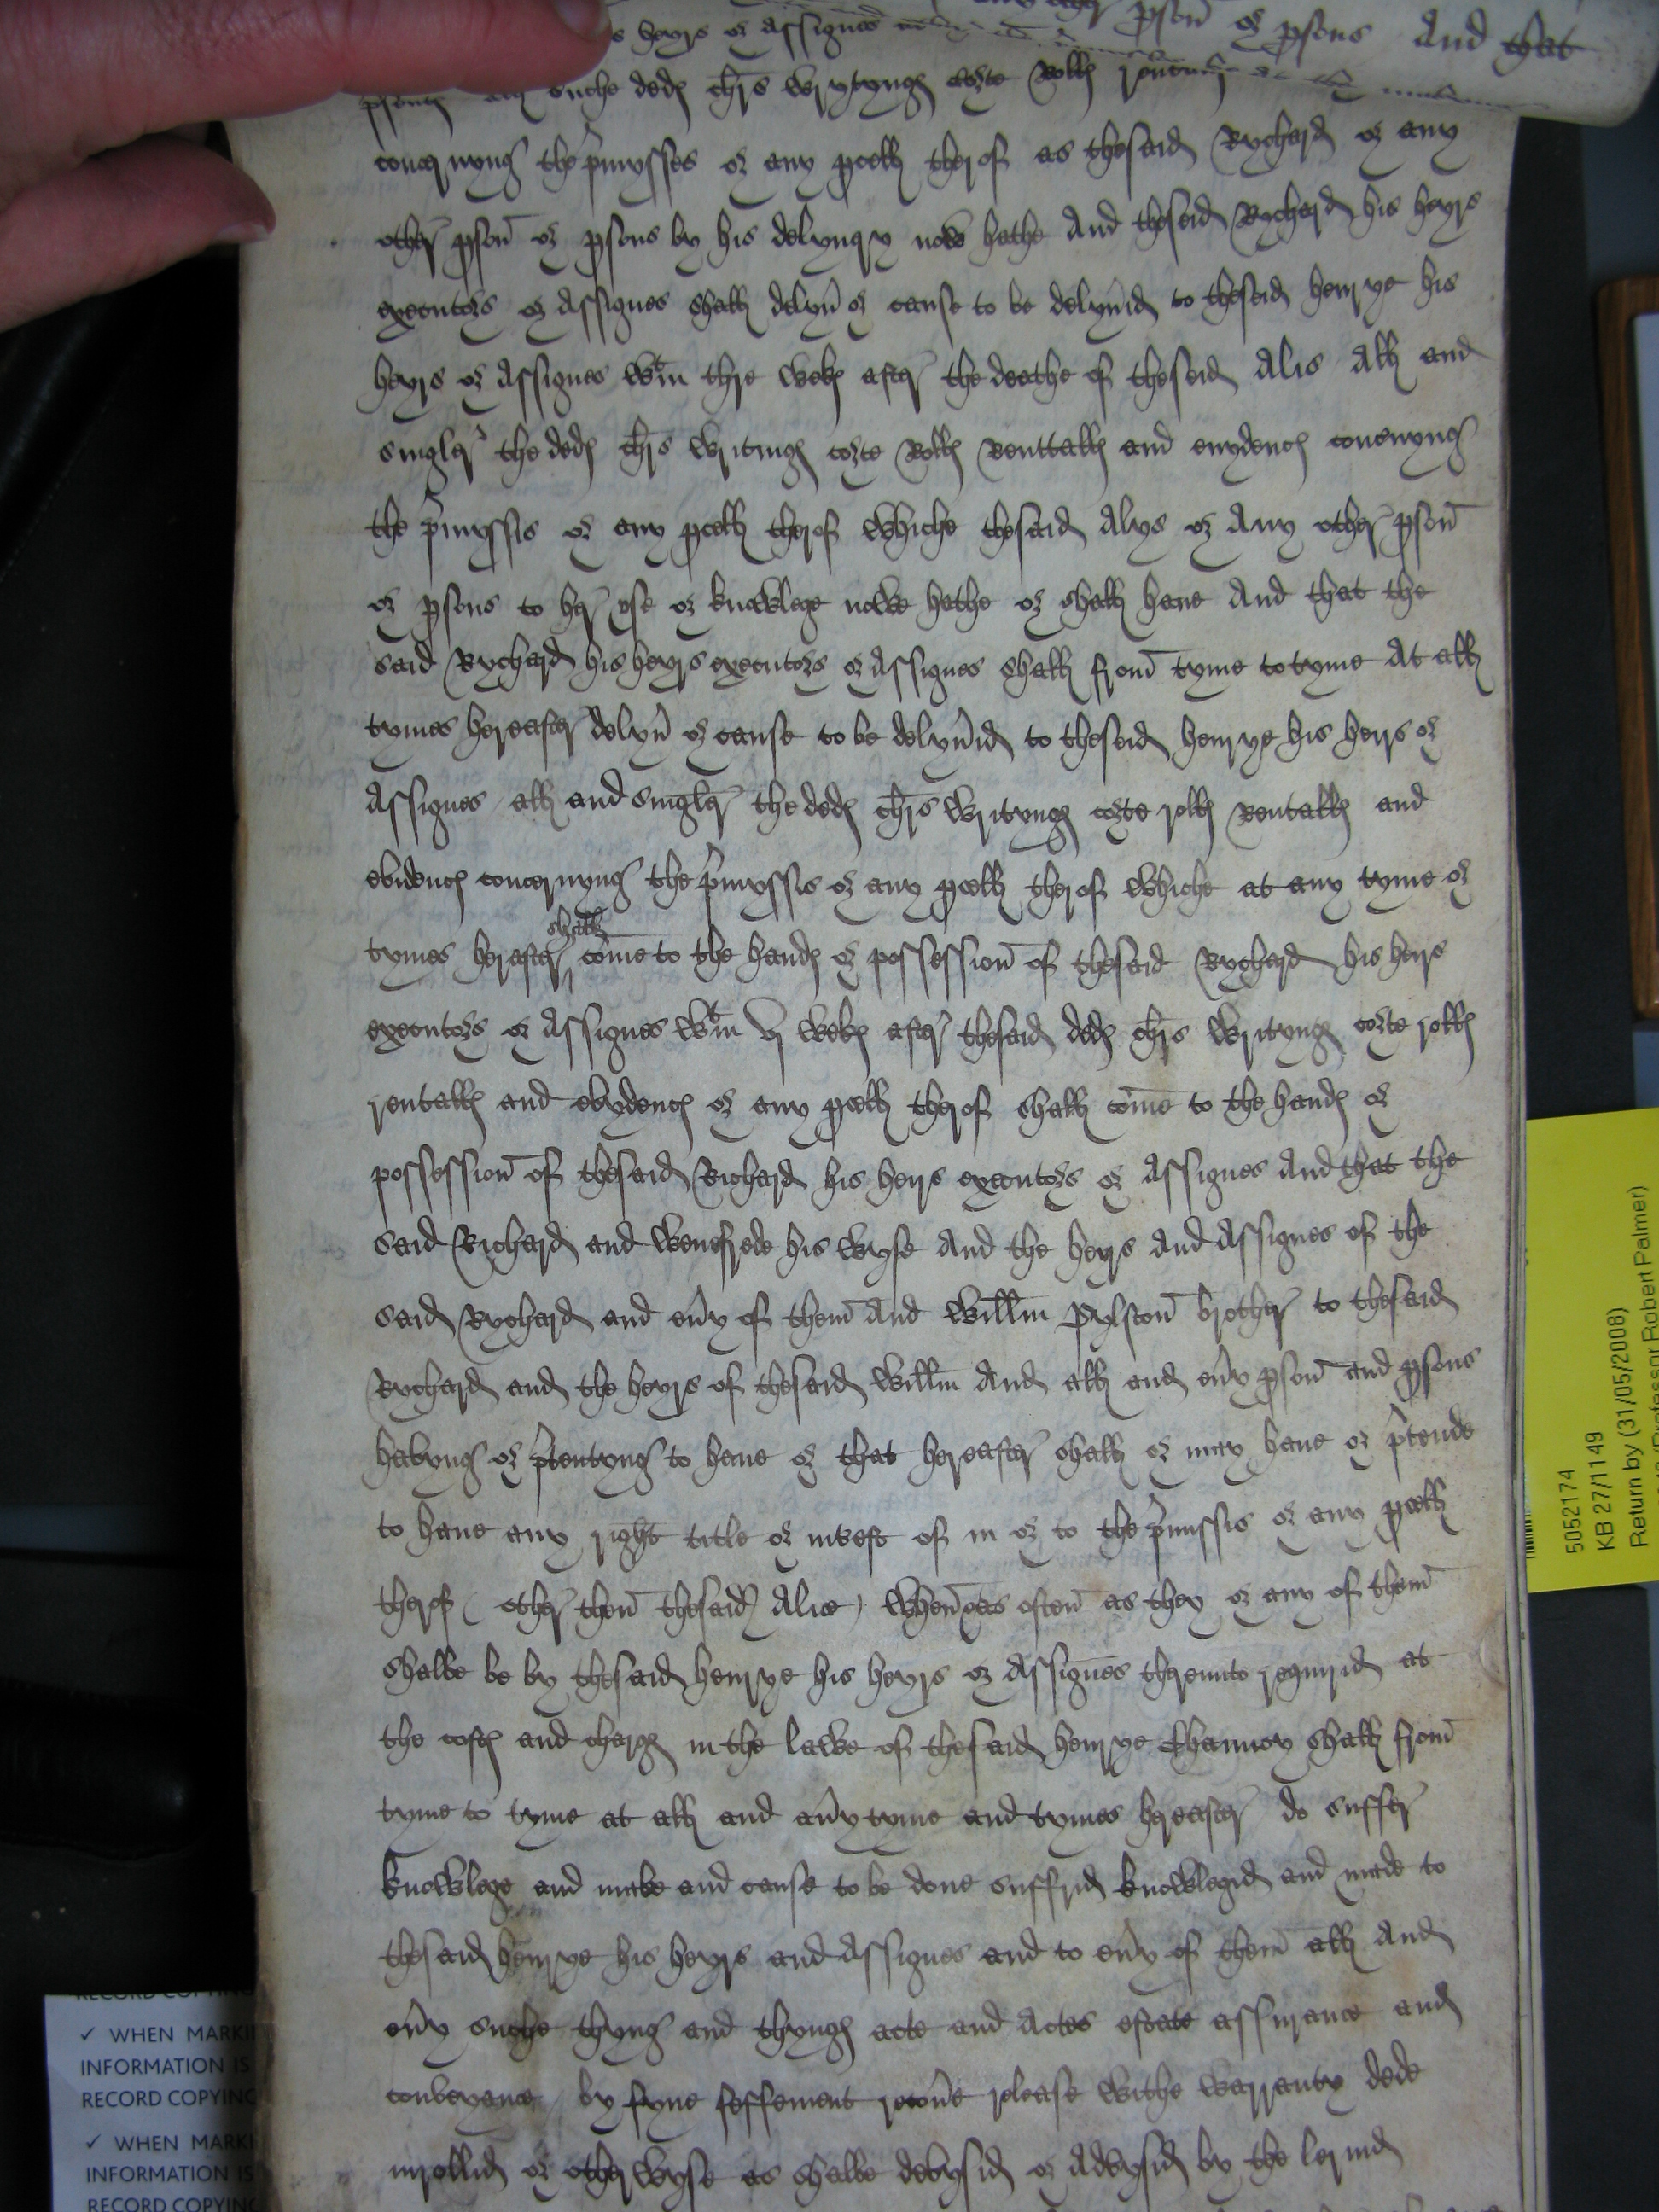 s heyrs or Assignes
p̱son or p̱sons And that
suche dedes chr̄s wrytynges corte Rolles
concernyng the p̱mysses or any p̱cell therof as thesaid Rychard or any
other p̱son or p̱sons by his delyuery nowe hathe And theseid Rychard his heyrs
executors or Assignes shall delyu̅ or cause to be delyu̅id to theseid henrye his
heyrs or Assignes wᵗin thre wekes after the deathe of theseid Alis All and
singler the dedes chr̄s writinges corte Rolles Renttalles and euydences concernyng
the p̱myssis or any p̱cell therof whiche thesaid Alys or Any other p̱son
or p̱sons to her vse or knowlege nowe hathe or shall haue And that the
said Rychard his heyrs executors or Assignes shall from tyme to tyme At all
tymes hereafter delyu̅ or cause to be delyu̅id to theseid henrye his heirs or
Assignes all and singler the dedes chr̄s writynges corte rolles Rentalles and
evidences concernyng the p̱myssis or any p̱cell therof whiche at any tyme or
tymes herafter shall come to the handes or possession of thesaid Rychard his heirs
executors or Assignes wᵗin vj wekes after thesaid dedes chr̄s writynges corte rolles
rentalles and evydences or any p̱cell therof shall come to the handes or
possession of thesaid Richard his heirs executors or Assignes And that the
said Richard and Wenefrede his wyfe And the heyrs And Assignes of the
said Rychard and eu̅y of them And Willm̅ Pylston brother to thesaid
Rychard and the heyrs of thesaid Willm̅ And all and eu̅y p̱son and p̱sons
havyng or p̱tentyng to haue or that hereafter shall or may haue or p̱tende
to haue any right title or int̅est of in or to the p̱missis or any p̱cell
therof ( other then thesaid Alice ) When as often as they or any of them
shalbe be by thesaid henrye his heyrs or Assignes thereunto requirid at
the costes and charges in the lawe of thesaid henrye Channcy shall from
tyme to tyme at all and au̅y tyme and tymes hereafter do suffer
knowlege and make and cause to be done suffrid knowlegid and made to
thesaid henrye his heyrs and Assignes and to eu̅y of them all And
eu̅y suche thyng and thynges acte and Actes estate assurance and
conveyance by fyne feffement recou̅e release withe warranty dede
inrollid or otherwyse as shalbe devysid or Advysid by the lernid
5052174
KB 27/1149
Return by (31/05/2008)
(Professor Robert Palmer)
RECORD COPYING
✓ WHEN MARKI
INFORMATION IS
RECORD COPYING
✓ WHEN MARKI
INFORMATION IS
RECORD COPYING